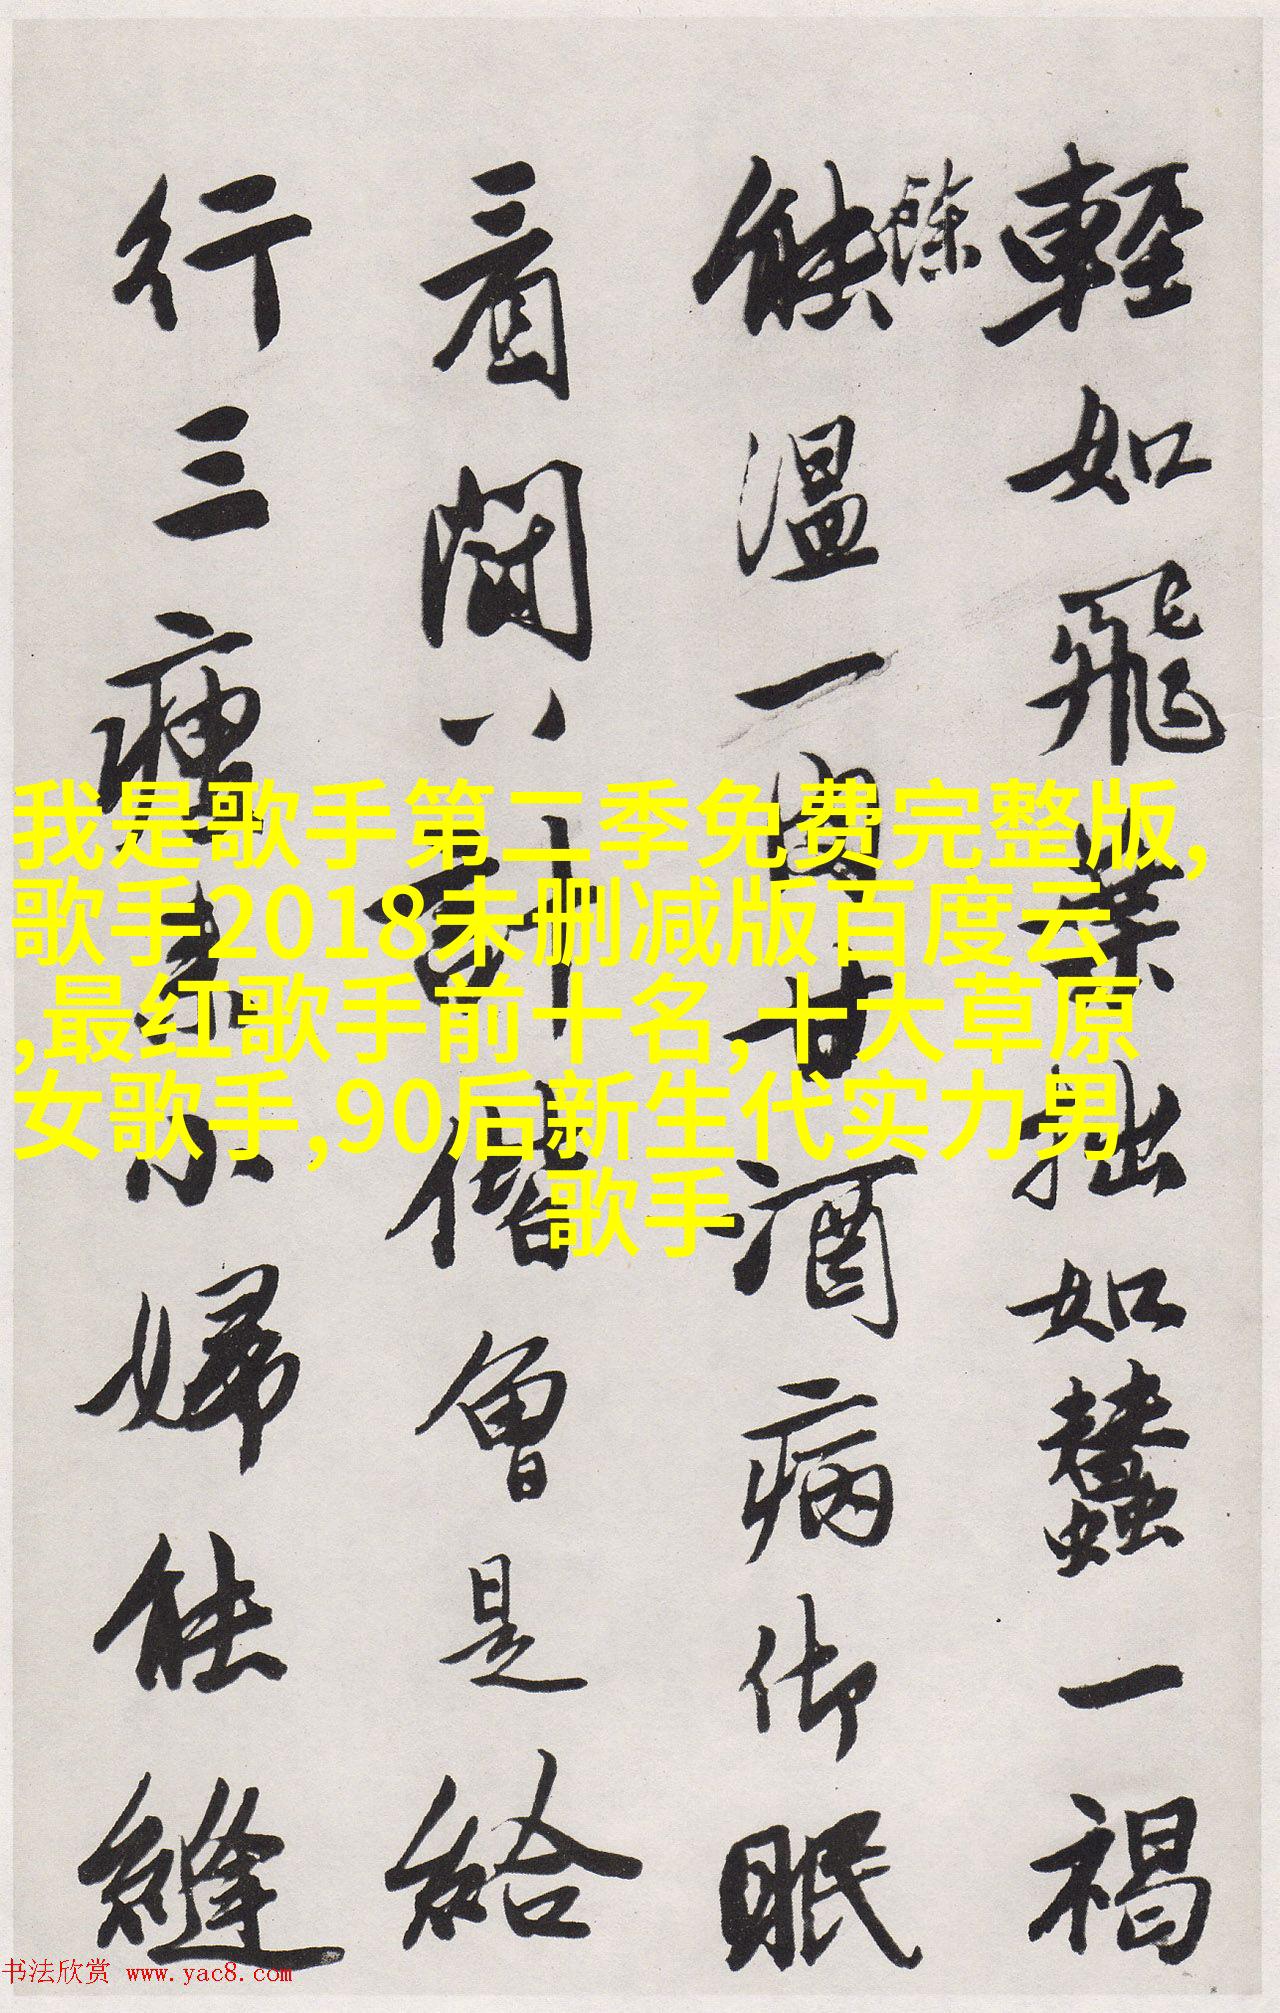 輕如飛葉拙如蠶一褐
餘
能溫一肉甘酒病仰眠
看鬭八計偕曾是給
行三瘦小婦能縫
我是歌手第二季免费完整版,
歌手2018未删减版百度云
,最红歌手前十名,十大草原
女歌手,90后新生代实力男
歌手
书法欣赏 www.yac8.com